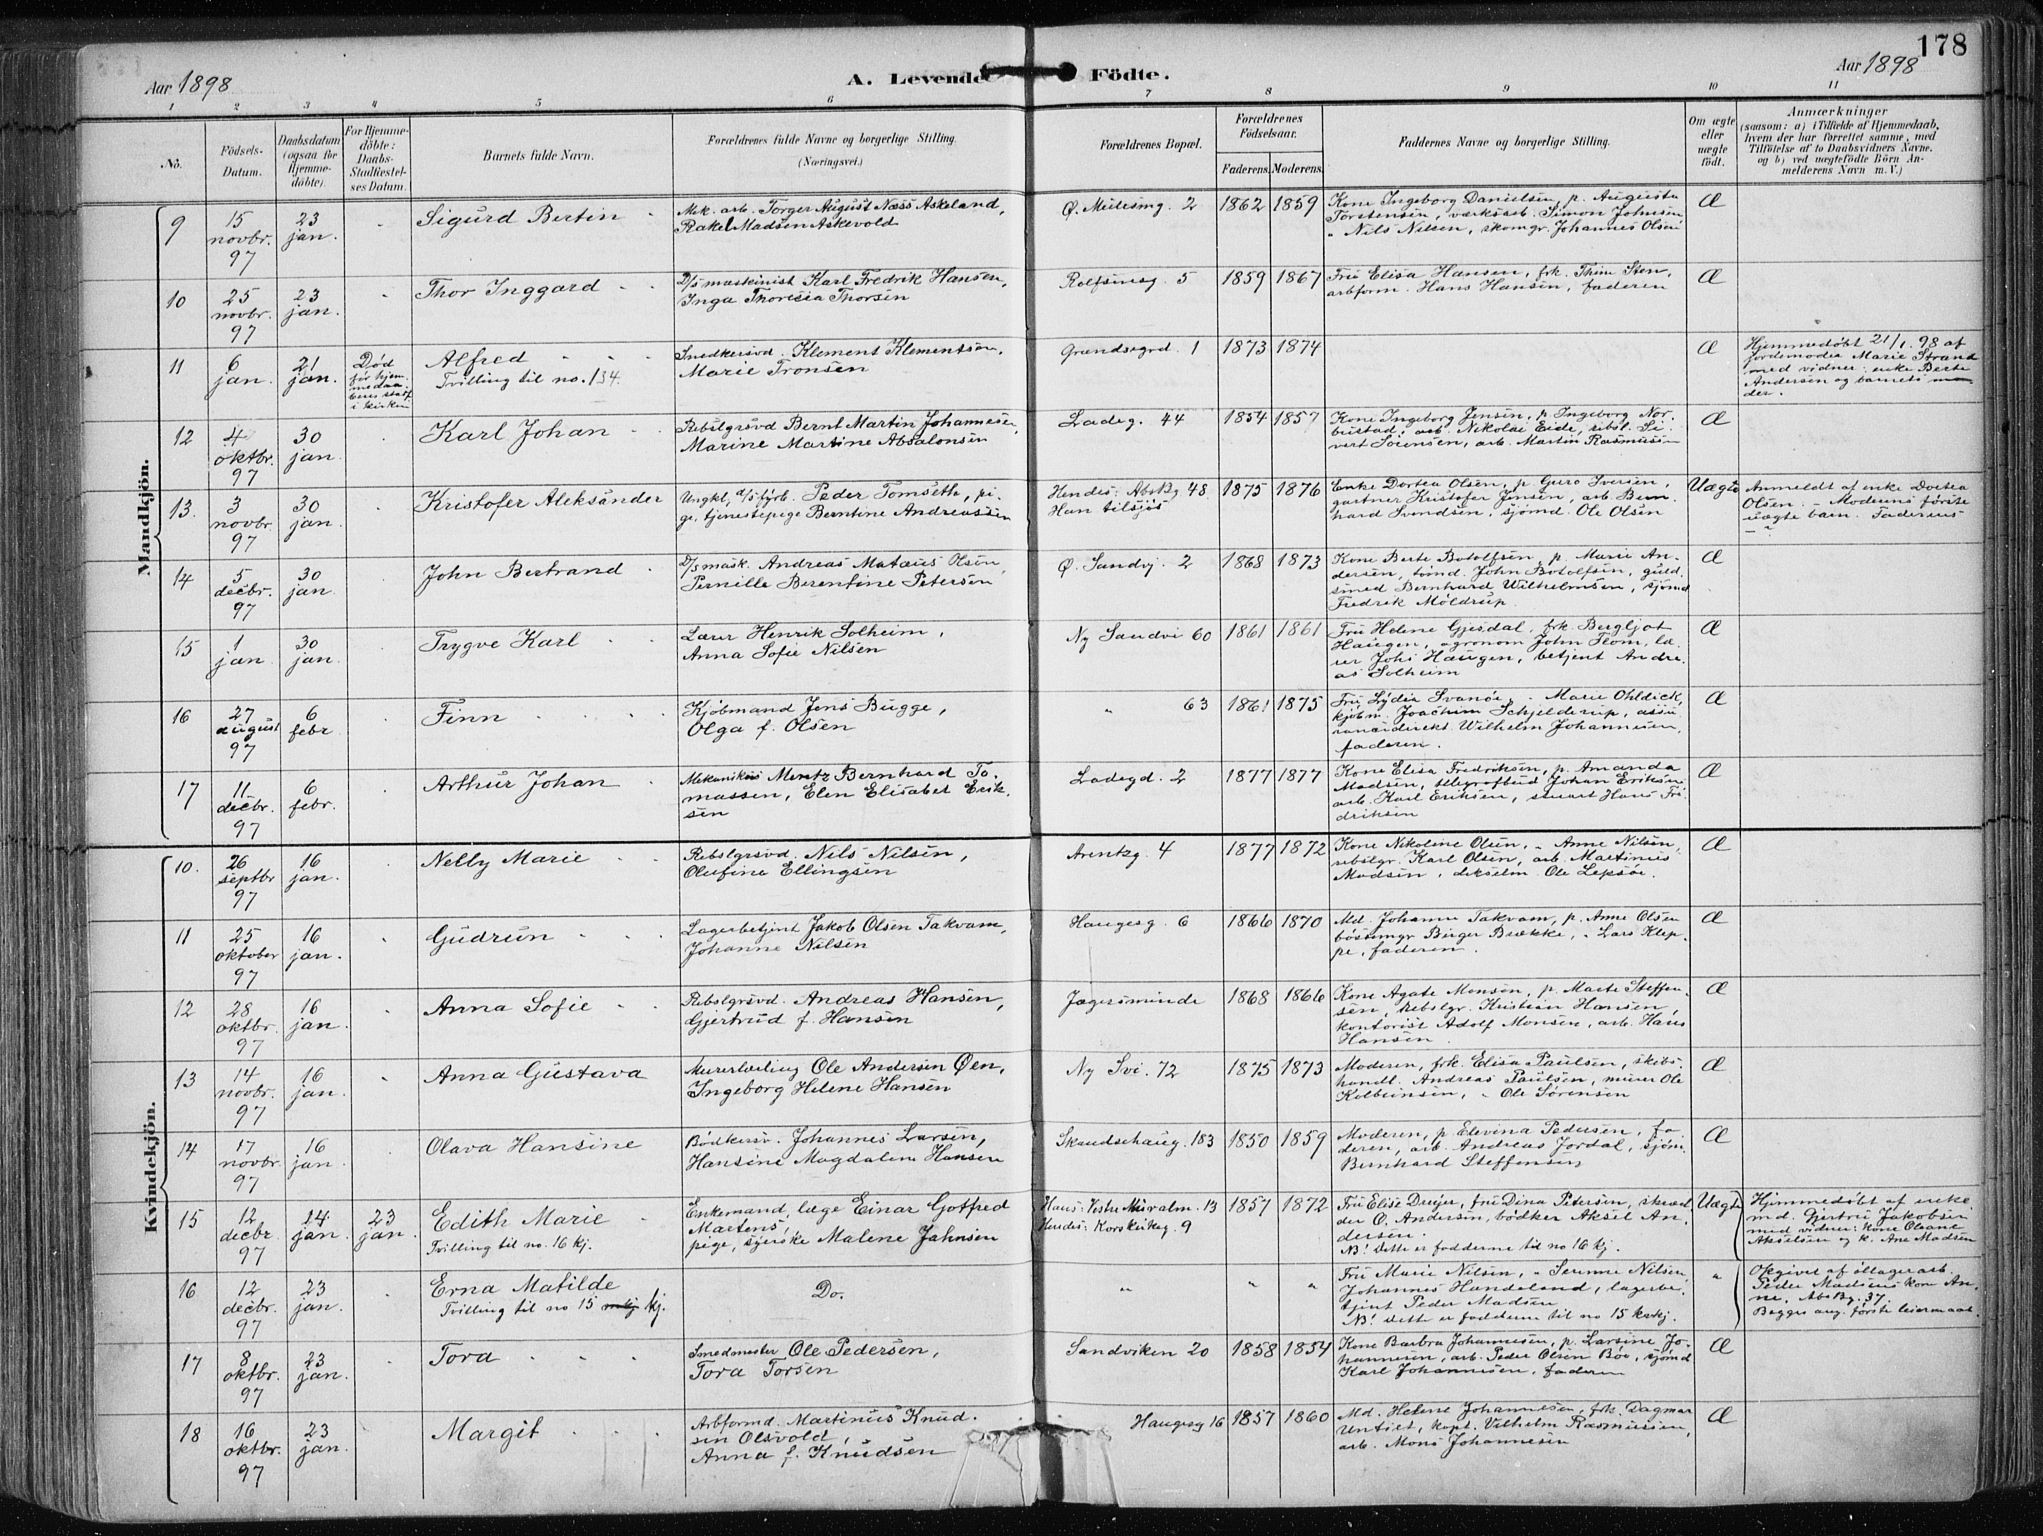 178
Aar 1898
A. Levende Födte.
Aar 1898
1 2 3 4 5 6 7 8 9 10 11
No.
Födsels-Datum.
Daabsdatum (ogsaa for Hjemmedöbte).
For Hjemmedöbte: Daabs-Stadfæstelses Datum.
Barnets fulde Navn.
Forældrenes fulde Navne og borgerlige Stilling.
(Næringsvei.)
Forældrenes Bopæl.
Forældrenes Födselsaar.
Faderens. Moderens.
Faddernes Navne og borgerlige Stilling.
Om ægte eller uægte födt.
Anmærkninger
(saasom: a) i Tilfælde af Hjemmedaab,
hvem der har forrettet samme, med
Tilföielse af to Daabsvidners Navne,
og b) ved uægtefödte Börn Anmelderens Navn m. V.)
Mandkjön.
9
15 novbr. 97
23 jan.
Sigurd Bertin
Mek. arb. Torger August Næss Askeland,
Rakel Madsen Askevold
Ø. Mulesmg. 2
1862 1859
Kone Ingeborg Danielsen, p. Augusta
Torstensen, værksarb. Simon Johnsen,
" Nils Nilsen, skomgr. Johannes Olsen
Æ
10
25 novbr. 97
23 jan.
Thor Inggard
D/s maskinist Karl Fredrik Hansen,
Inga Theresia Thorsen
Rolfsmsg. 5
1859 1867
Fru Elisa Hansen, frk. Thim Sten,
arbform. Hans Hansen, faderen
Æ
11
6 jan.
21 jan.
Død før hjemmedaa
i kirken
Alfred
Tvilling til no. 134.
Snedkersvd. Klement Klementsen,
Marie Tronsen
Grændsegrd. 1
1873 1874
Æ
Hjemmedøbt 21/1. 98 af
jordemoder Marie Strand
med vidner: enke Berte
Andersen og barnets moder.
12
4 oktbr. 97
30 jan.
Karl Johan
Rebslgrsvd Bernt Martin Johannesen,
Marine Martine Absalonsen
Ladeg. 44
1854 1857
Kone Ingeborg Jensen, p. Ingeborg Norbustad,
arb. Nikolai Eide, rebsl. Sivert
Sørensen, arb. Martin Rasmussen
Æ
13.
3 novbr. 97
30 jan.
Kristofer Aleksander
Ungkl. d/s fyrb. Peder Tomseth, pige,
tjenestepige Berntine Andreassen
Hendes: Absbg 48
Han tilsjøs
1875 1876
Enke Dortea Olsen, p. Guro Iversen,
gartner Kristofer Jensen, arb. Bernhard
Svendsen, sjømd. Ole Olsen
Uægte
Anmeldt af enke Dortea
Olsen. – Moderens første
uægte barn. Faderens
14
5 decbr. 97
30 jan.
John Bertrand
D/s mask. Andreas Matæus Olsen,
Pernille Berentine Petersen
Ø. Sandvj. 2
1868 1873
Kone Berte Botolfsen, p. Marie Andersen,
tømd. John Botolfsen, guldsmed
Bernhard Wilhelmsen, sjømd
Fredrik Møldrup.
Æ
15
1 jan.
30 jan.
Trygve Karl
Lærer Henrik Solheim,
Anna Sofie Nilsen
Ny Sandvi 60
1861 1861
Fru Helene Gjesdal, frk. Bergljot
Haugen, agronom John Flom, lærer
Johs Haugen, betjent Andreas
Solheim
Æ
16
27 august 97
6 febr
Finn
Kjøbmand Jens Bugge,
Olga f. Olsen
" 63
1861 1875
Fru Lydia Svanøe, " Marie Ohldick,
kjøbm. Joachim Schjelderup, assurancedirekt.
Wilhelm Johannesen,
faderen.
Æ
17
11 decbr. 97
6 febr.
Arthur Johan
Mekaniker Mentz Bernhard Tomassen,
Elen Elisabet Eriksen
Ladegd. 2
1877 1877
Kone Elisa Fredriksen, p. Amanda
Madsen, telegrafbud Johan Eriksen
arb. Karl Eriksen, stuart Hans Fridriksen
Æ
Kvindekjön.
10.
26 septbr 97
16 jan.
Nelly Marie
Rebslgrsvd. Nils Nilsen,
Olufine Ellingsen
Arentzg. 4
1877 1872
Kone Nikoline Olsen, " Anne Nilsen,
rebslgr. Karl Olsen, arb. Martinus
Madsen, Ole Lepsøe.
Æ
11
25 oktober 97
16 jan.
Gudrun
Lagerbetjent Jakob Olsen Takvam,
Johanne Nilsen
Haugesg. 6
1866 1870
Md. Johanne Takvam, p. Anne Olsen
bøssemgr Birger Brække, " Lars Kleppe,
faderen.
Æ
12
28 oktbr. 97
16 jan.
Anna Sofie
Rebslgrsvd. Andreas Hansen,
Gjertrud f. Hansen
Jægersminde
1868 1866
Kone Agate Monsen, p. Marte Steffensen,
rebslgr. Kristian Hansen,
kontorist Adolf Monsen, arb. Hans
Hansen.
Æ
13
14 novbr. 97
16 jan.
Anna Gustava
Murerlærling Ole Andersen Øen,
Ingeborg Helene Hansen
Ny Svi. 72
1875 1873
Moderen, frk. Elisa Paulsen, skibshandl.
Andreas Paulsen, murer Ole
Kolbeinsen, " Ole Sørensen
Æ
14
17 novbr. 97
16 jan.
Olava Hansine
Bødkersv. Johannes Larsen,
Hansine Magdalene Hansen
Skandsehaug. 183
1850 1859
Moderen, p. Elevina Pedersen, faderen,
arb. Andreas Jordal, sjøm.
Bernhard Steffensen
Æ
15
12 decbr 97
14 jan.
23 jan.
Edith Marie
Tvilling til no. 16 kj.
Enkemand, læge Einar Gotfred
Martens,
pige, syerske Malene Jahnsen
Hans: Vestre Muralm. 13
Hendes: Korskirkeg. 9
1857 1872
Fru Elise Dreyer, fru Dina Petersen, skrædder
O. Andersen, bødker Aksel Andersen.
NB! Dette er fadderne til no 16 kj.
Uægte
Hjemmedøbt af enke
md. Gjertru Jakobsen
med vidner: kone Oleane
Akselsen og k. Ane Madsen
16
12 decbr. 97
23 jan.
Erna Matilde
Tvilling til no 15 kj.
Do.
" " "
Fru Marie Nilsen, " Serinne Nilsen,
Johannes Haudeland, lagerbetjent
Peder Madsen
NB! Dette er fadderne til no 15 kvkj.
"
Opgivet af øllagerarb.
Peder Madsens kone Anne,
AbsBg. 37.
Begges ang. første leiermaal.
17
8 oktbr. 97
23 jan.
Tora
Smedmester Ole Pedersen,
Tora Torsen
Sandviken 20
1858 1854
Kone Barbra Johannesen, p. Larsine Johannesen,
arb. Peder Olsen Bøe, sjømd
Karl Johannesen, faderen
Æ
18
16 oktbr. 97
23 jan.
Margit
Arbformd. Martinus Knudsen
Olsvold,
Anna f. Knudsen
Haugesg 16
1857 1860
Md. Helene Johannesen, frk. Dagmar
Untiet, kapt. Vilhelm Rasmussen,
arb. Mons Johannesen
Æ